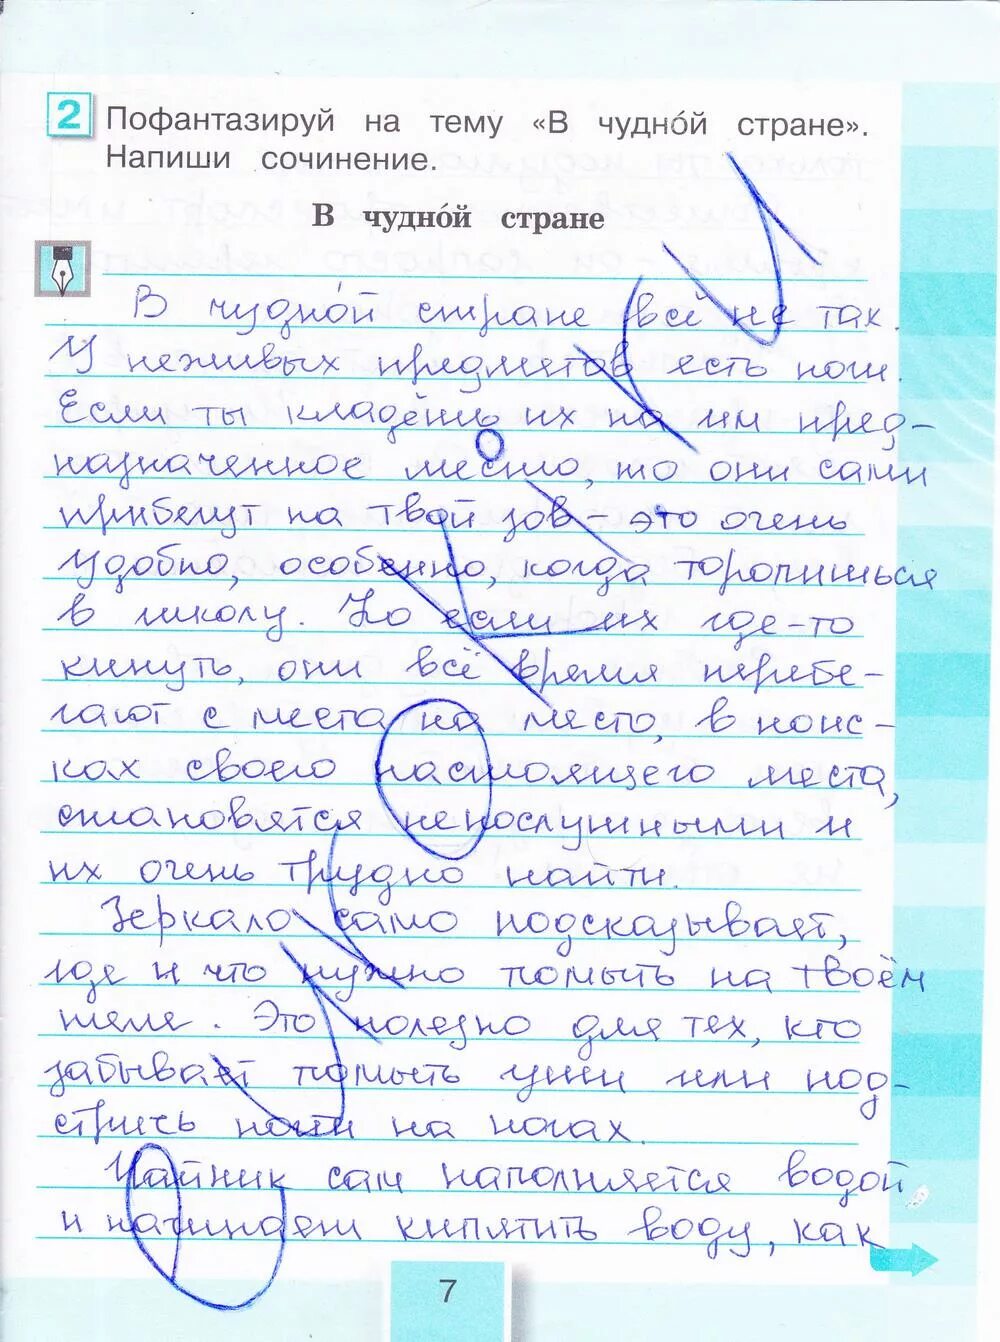 2 Пофантазируй на тему «В чудно́й стране».
Напиши сочинение.
В чудно́й стране
В чудно́й стране всё не так.
У неживых предметов есть ноги.
Если ты кладёшь их на им пред-
назначенное место, то они сами
прибегут на твой зов - это очень
удобно, особенно, когда торопишься
в школу. Но если их где-то
кинуть, они всё время перебе-
гают с места на место, в поис-
ках своего настоящего места,
становятся непослушными и
их очень трудно найти.
Зеркало само подсказывает,
где и что нужно помыть на твоём
теле. Это полезно для тех, кто
забывает помыть уши или под-
стричь ногти на ногах.
Чайник сам наполняется водой
и начинает кипятить воду, как
7